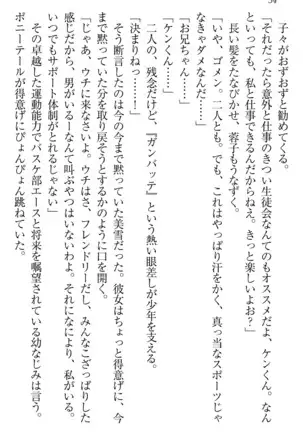 子々がおずおずと勧めてくる。
「それだったら意外と仕事のきつい生徒会なんてのもオススメだよ、ケンくん。なん
てったって、私も仕事できるんだからねえ。きっと楽しいよお?」
長い髪をたなびかせ、蓉子もうなずく。
「いや、ゴメン。二人とも。でも、これはやっぱり汗をかく、真っ当なスポーツじゃ
なきゃダメなんだ……」
「お兄ちゃん……」
「ケンくん……」
二人の、残念だけど、『ガンバッテ』という熱い眼差しが少年を支える。
「決まりねっ……!」
そう断言したのは今の今まで黙っていた美雪だった。彼女はちょっと得意げに、今
まで黙っていた分を取り戻そうとするかのように口を開く。
「じゃあ、ウチに来なさいよ。ウチはさ、フレンドリーだし、みんなこざっぱりした
感じだから、男がいるーなんて叫ぶやつはいないわよ。それになにより、私がいる。
いつでもサポート体制がとれるじゃない」
その卓越した運動能力でバスケ部エースと将来を嘱望されている幼なじみは言う。
ポニーテールが得意げにぴょんぴょん跳ねていた。